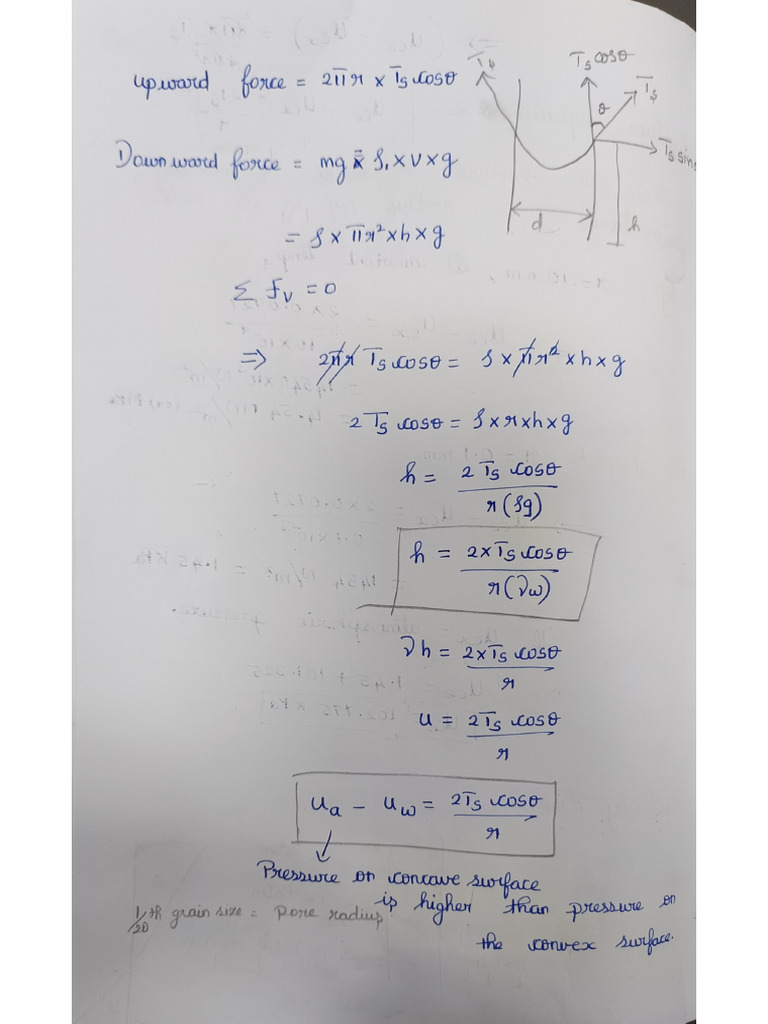 upward force = 2πr × Ts cosθ
Ts
Ts cosθ
Ts
θ
Ts sinθ
d
h
Downward force = mg = ρ × V × g
= ρ × πr² × h × g
Σ Fv = 0
⇒ 2πr Ts cosθ = ρ × πr² × h × g
2 Ts cosθ = ρ × r × h × g
h = 2 Ts cosθ / r (ρg)
h = 2 × Ts cosθ / r (γw)
γh = 2 × Ts cosθ / r
u = 2 Ts cosθ / r
ua - uw = 2 Ts cosθ / r
Pressure on concave surface
is higher than pressure on
the convex surface.
1/20 th grain size = Pore radius